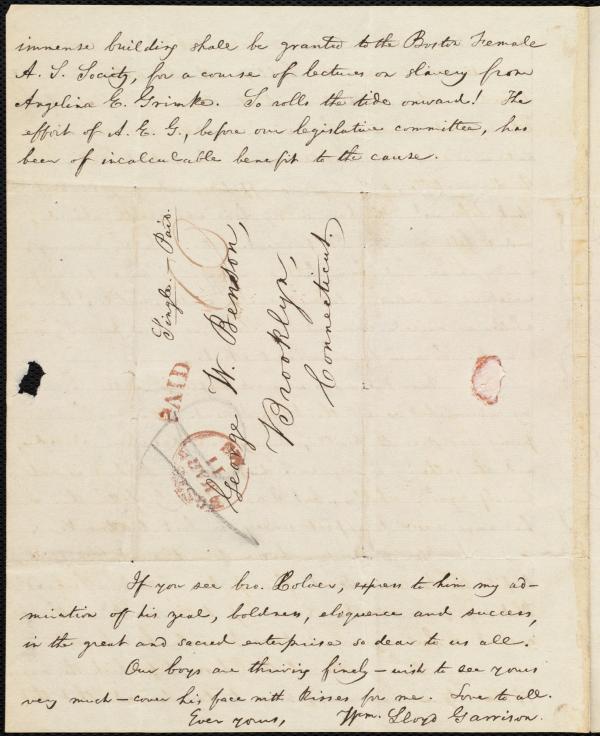 immense building shall be granted to the Boston Female
A. S. Society, for a course of lectures on slavery from
Angelina E. Grimke. So rolls the tide onward! The
effort of A. E. G., before our legislative committee, has
been of incalculable benefit to the cause.
Single. — Paid.
PAID
BOSTON
MAR
11
George W. Benson,
Brooklyn,
Connecticut.
If you see bro. Colver, express to him my ad-
miration of his zeal, boldness, eloquence and success,
in the great and sacred enterprise so dear to us all.
Our boys are thriving finely — wish to see yours
very much — cover his face with kisses for me. Love to all.
Ever yours, Wm. Lloyd Garrison.